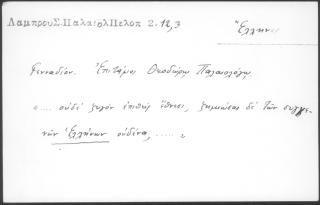 Λαμπρου Σ. Παλαιολ Πελοπ 2. 12, 3
Ἕλλην
Γενναδίου. Ἐπιτάφιος Θεοδώρῳ Παλαιολόγῳ
«.... οὐδὲ ζυγὸν ἐπιθεὶς ἔθνεσι, ζημιώσας δὲ τῶν συγγε-
νῶν Ἑλλήνων οὐδένα, ..... »